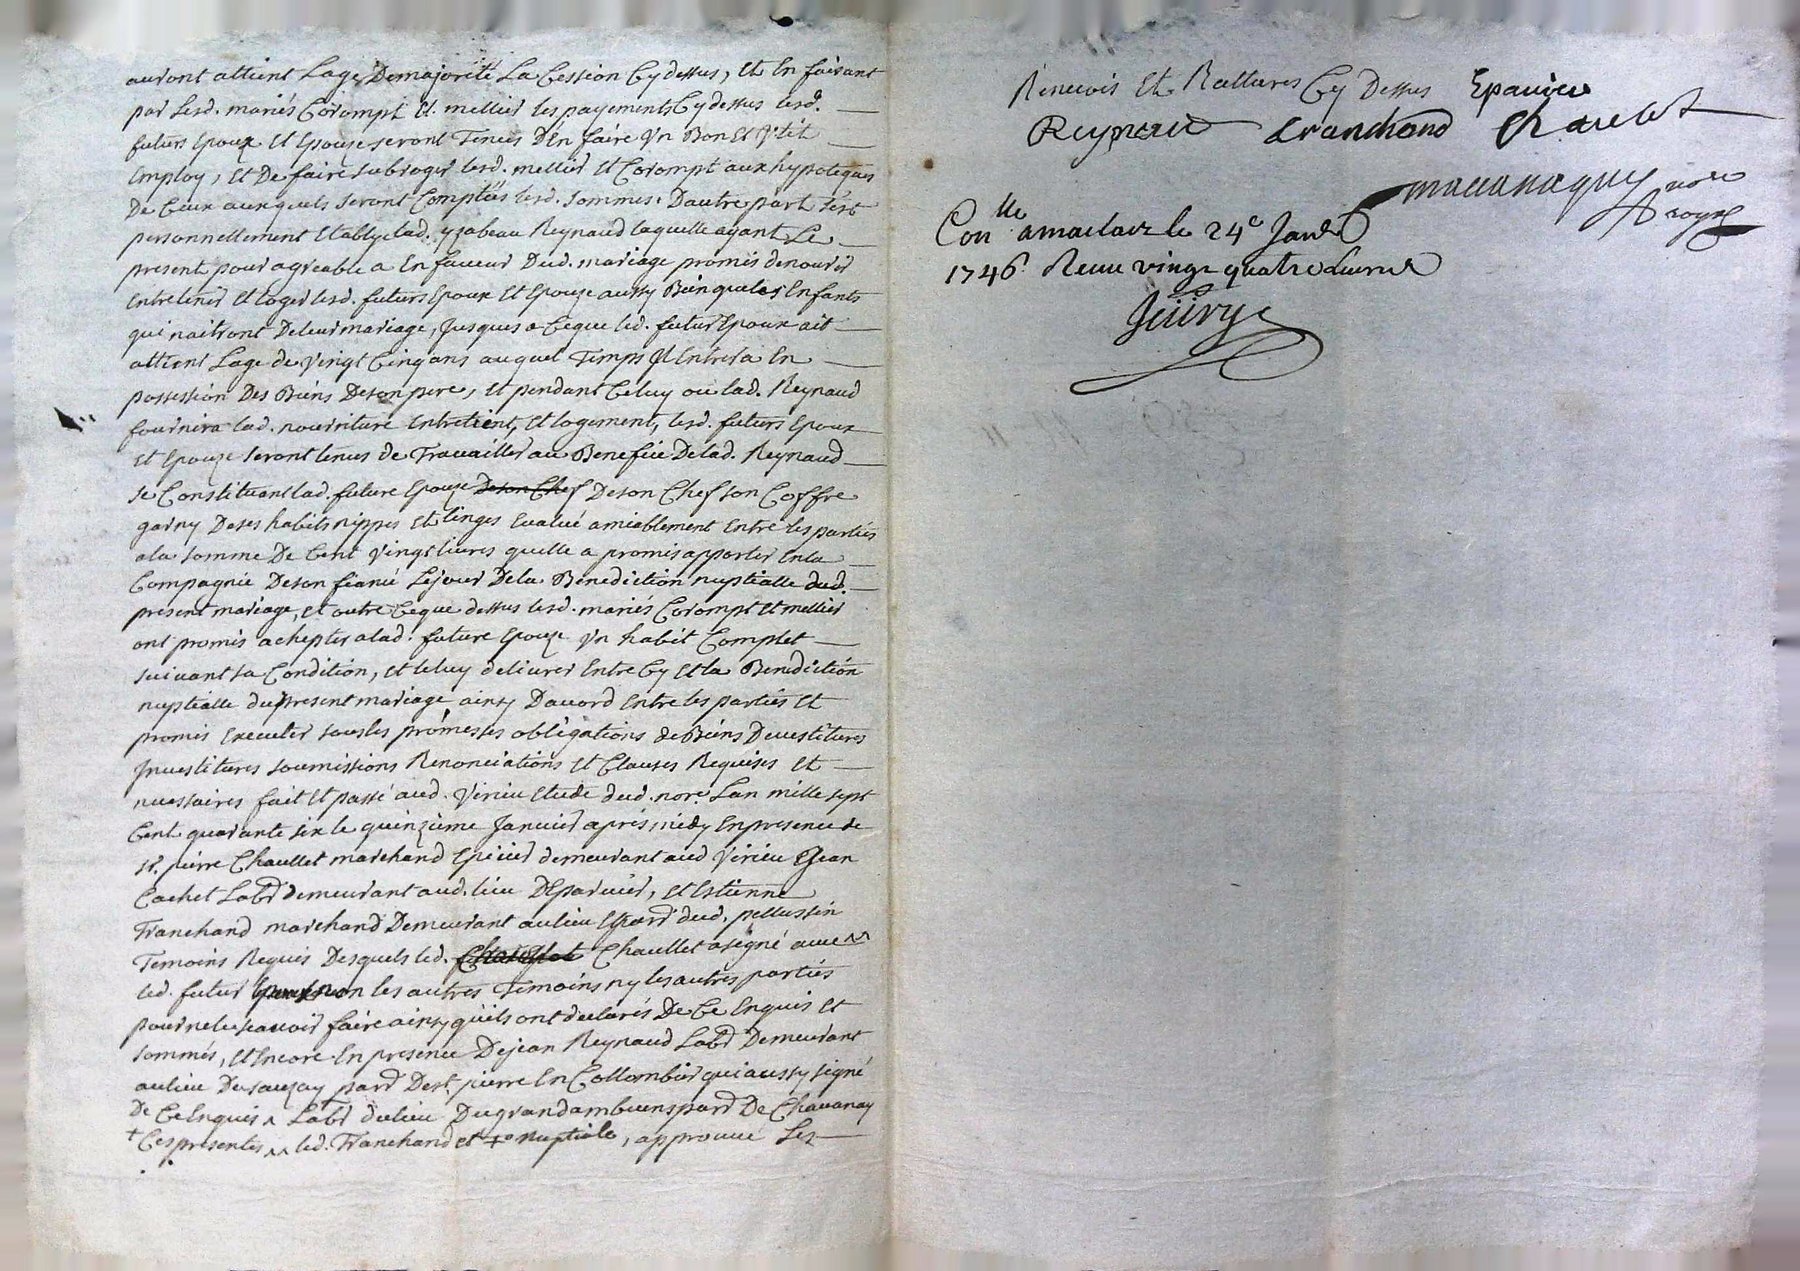 auront attient Lage Demajorité La Cession Cy dessus, Et En faisant
par Lesd. mariés Corompt Et mellier les payements Cy dessus lesd.
futurs Epoux Et Epouze seront Tenus DEn faire Vn Bon Et Vtil
Employ, Et De faire subroger lesd. mellier Et Corompt aux hypoteques
De Ceux auxquels seront Comptées lesd. sommes. Dautre part s'est
personnellement Etablye lad. yzabeau Reynaud laquelle ayant Le
present pour agreable a En faveur Dud. mariage promis denourir
Entretenir Et loger lesd. futurs Epoux Et Epouze aussy Bien que les Enfants
qui naitront De leur mariage, Jusques a Ceque led. futur Epoux ait
attient Lage de Vingt Cinq ans auquel Temps Jl Entrera En
possession Des Biens De son pere, Et pendant Celuy ou lad. Reynaud
fournira lad. nourriture Entretient, Et logement, lesd. futurs Epoux
Et Epouze seront tenus de Travailler au Benefice De lad. Reynaud
se Constituant lad. future Epouze De son Chef De son Chef son Coffre
garny De ses habits nippes Et linges Evalué amiablement Entre les parties
a la somme De Cent Vingt livres quelle a promis apporter En la
Compagnie De son fiancé Le jour De la Benediction nuptialle dud.
present mariage, Et outre Ceque dessus lesd. mariés Corompt Et mellier
ont promis achepter a lad. future Epouze Vn habit Complet
suivant sa Condition, Et le luy delivrer Entre Cy Et la Benediction
nuptialle du present mariage ainsy Dacord Entre les parties Et
promis Executer sous les promesses obligations de Biens Devestitures
Jnvestitures soumissions Renonciations Et Clauses Requises Et
necessaires fait Et passé aud. Virieu Etude dud. nore. Lan mille sept
Cent quarante six le quinzieme Janvier aprés midy En presence de
sr. pierre Chaullet marchand Epicier demeurant aud Virieu Jean
Cachet Labr demeurant aud. lieu DEparvier, Et Estienne
Tranchand marchand Demeurant au lieu Eparr dud. pellussin
Temoins Requis Desquels led. Chaullet a signé avec
led. futur non les autres Temoins ny les autres parties
pour ne le scavoir faire ainsy quils ont declarés De Ce Enquis Et
sommés, Et Encore En presence De jean Reynaud Labr Demeurant
au lieu Du sauzay parr De st. pierre En Collombier qui a ussy signé
De Ce Enquis ^ Labr du lieu Du grand ambuens parr De Chavanay
+ Ces presentes ^^ led. Tranchand Et +o nuptiale, approuvé Les
Renvois Et Rattures Cy Dessus Epavier
Reynaud tranchand Chaulet
nore
royal
Conlle amaclas le 24e Janer
1746. Recu vingt quatre Livres